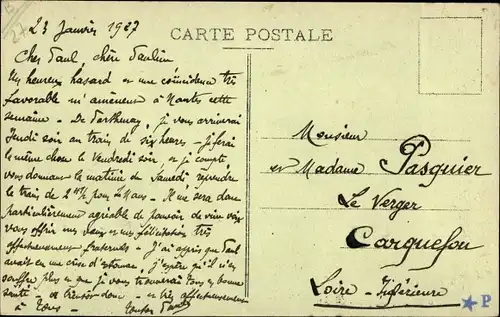 23 Janvier 1927
CARTE POSTALE
Cher Paul, chère Pauline
Un heureux hasard et une coïncidence très
favorable m'amèneront à Nantes cette
semaine - De Parthenay, je vous arriverai
Jeudi soir au train de six heures - je ferai
le même chose le Vendredi soir, et je compte
vous donner la matinée du Samedi reprendre
le train de pour Le Mans - Il me sera donc
particulièrement agréable de pouvoir de vive voix
vous offrir mes vœux et mes félicitations très
affectueusement fraternels - J'ai appris que Paul
avait eu une crise d'estomac, j'espère qu'il n'en
souffre plus et que je vous trouverai tous en bonne
santé - donc - et très affectueusement
à tous -
Monsieur
et Madame Pasquier
Le Verger
Carquefou
Loire - Inférieure
★ P